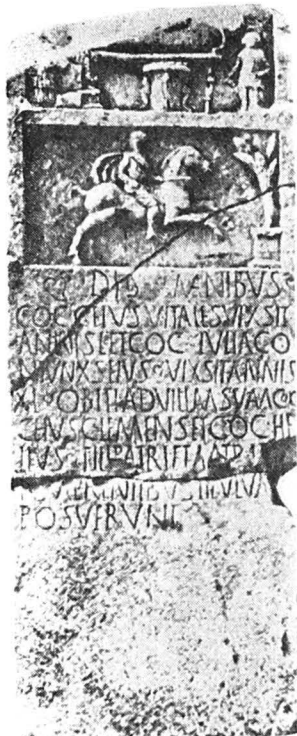 MANIBVS
COCCEIVS VITALES VIXSIT
ANNIS L ET COC IVLIA CO
EIVS VIXSIT ANNIS
XL OBITI AD VILLAM SVAM COC
CEIVS CLEMENS ET COC HE
FILI PATRI ET MATRI
TITVLVM
POSVERVNT